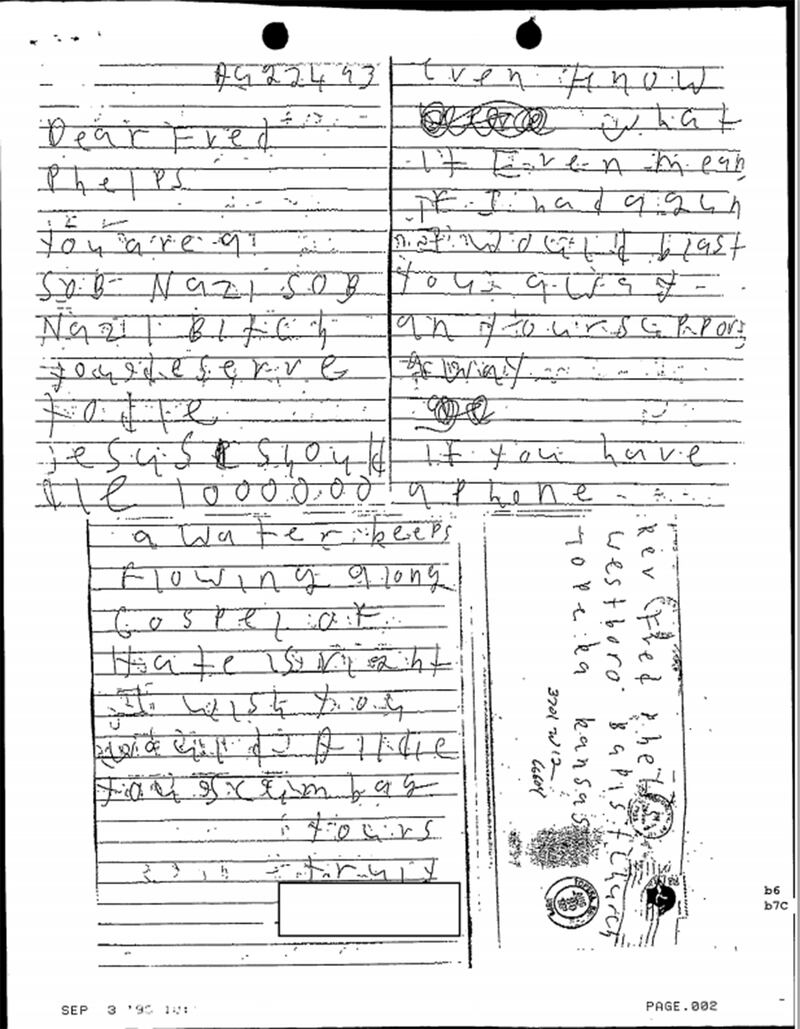 AG 22 4 93
Dear Fred
Phelps
You are a
SOB Nazi SOB
Nazi Bitch
you deserve
to die
jesus should
die 1000000
Even Know
what
it Even mean
If I had a gun
I would blast
you away
an yours
away
if you have
a phone
a Water keeps
Flowing along
Gospel of
Hate is right
I wish you
would All die
you scum bag
yours
truly
Rev Fred Phelps
Westboro Baptist Church
Topeka Kansas
3701 W 12
66604
b6
b7C
SEP 3 '9
PAGE.002